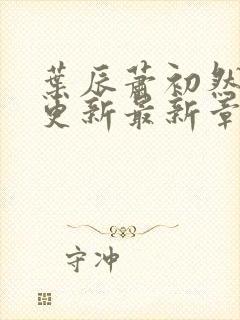 葉辰蕭初然
更新最新章
守冲